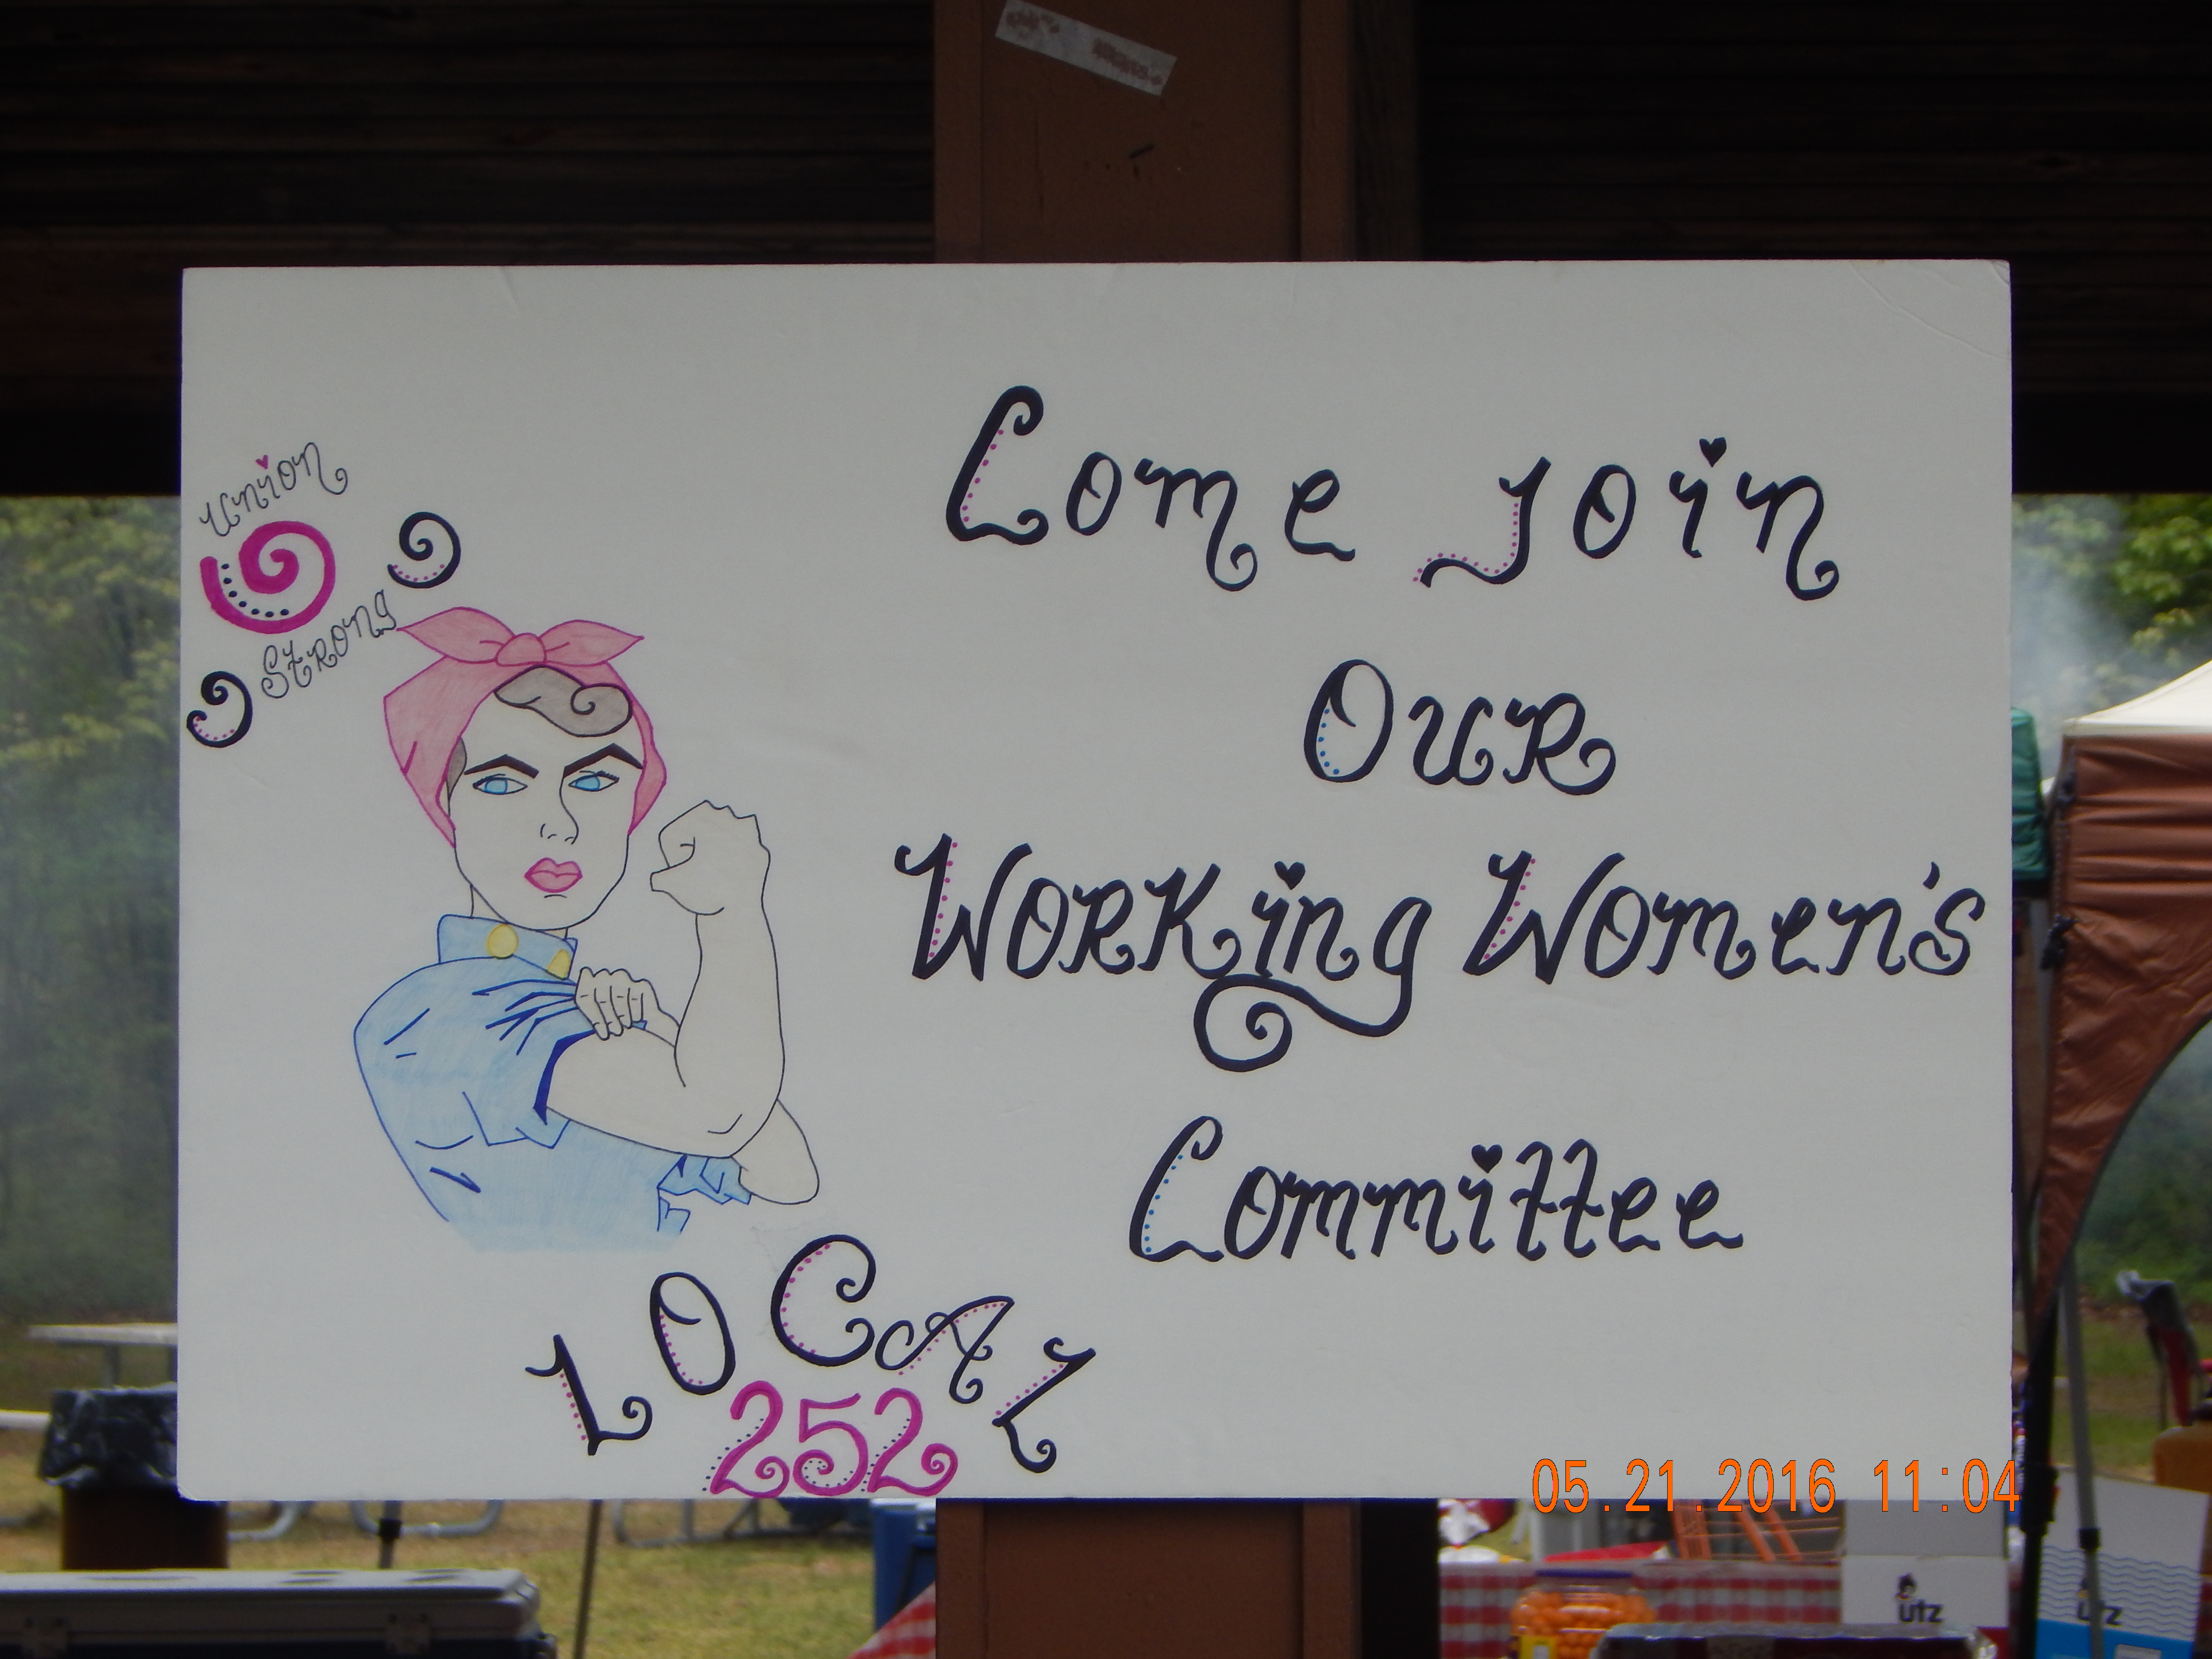 Come Join
Our
Working Women's
Committee
Union
Strong
LOCAL
252
05.21.2016 11:04
utz
utz